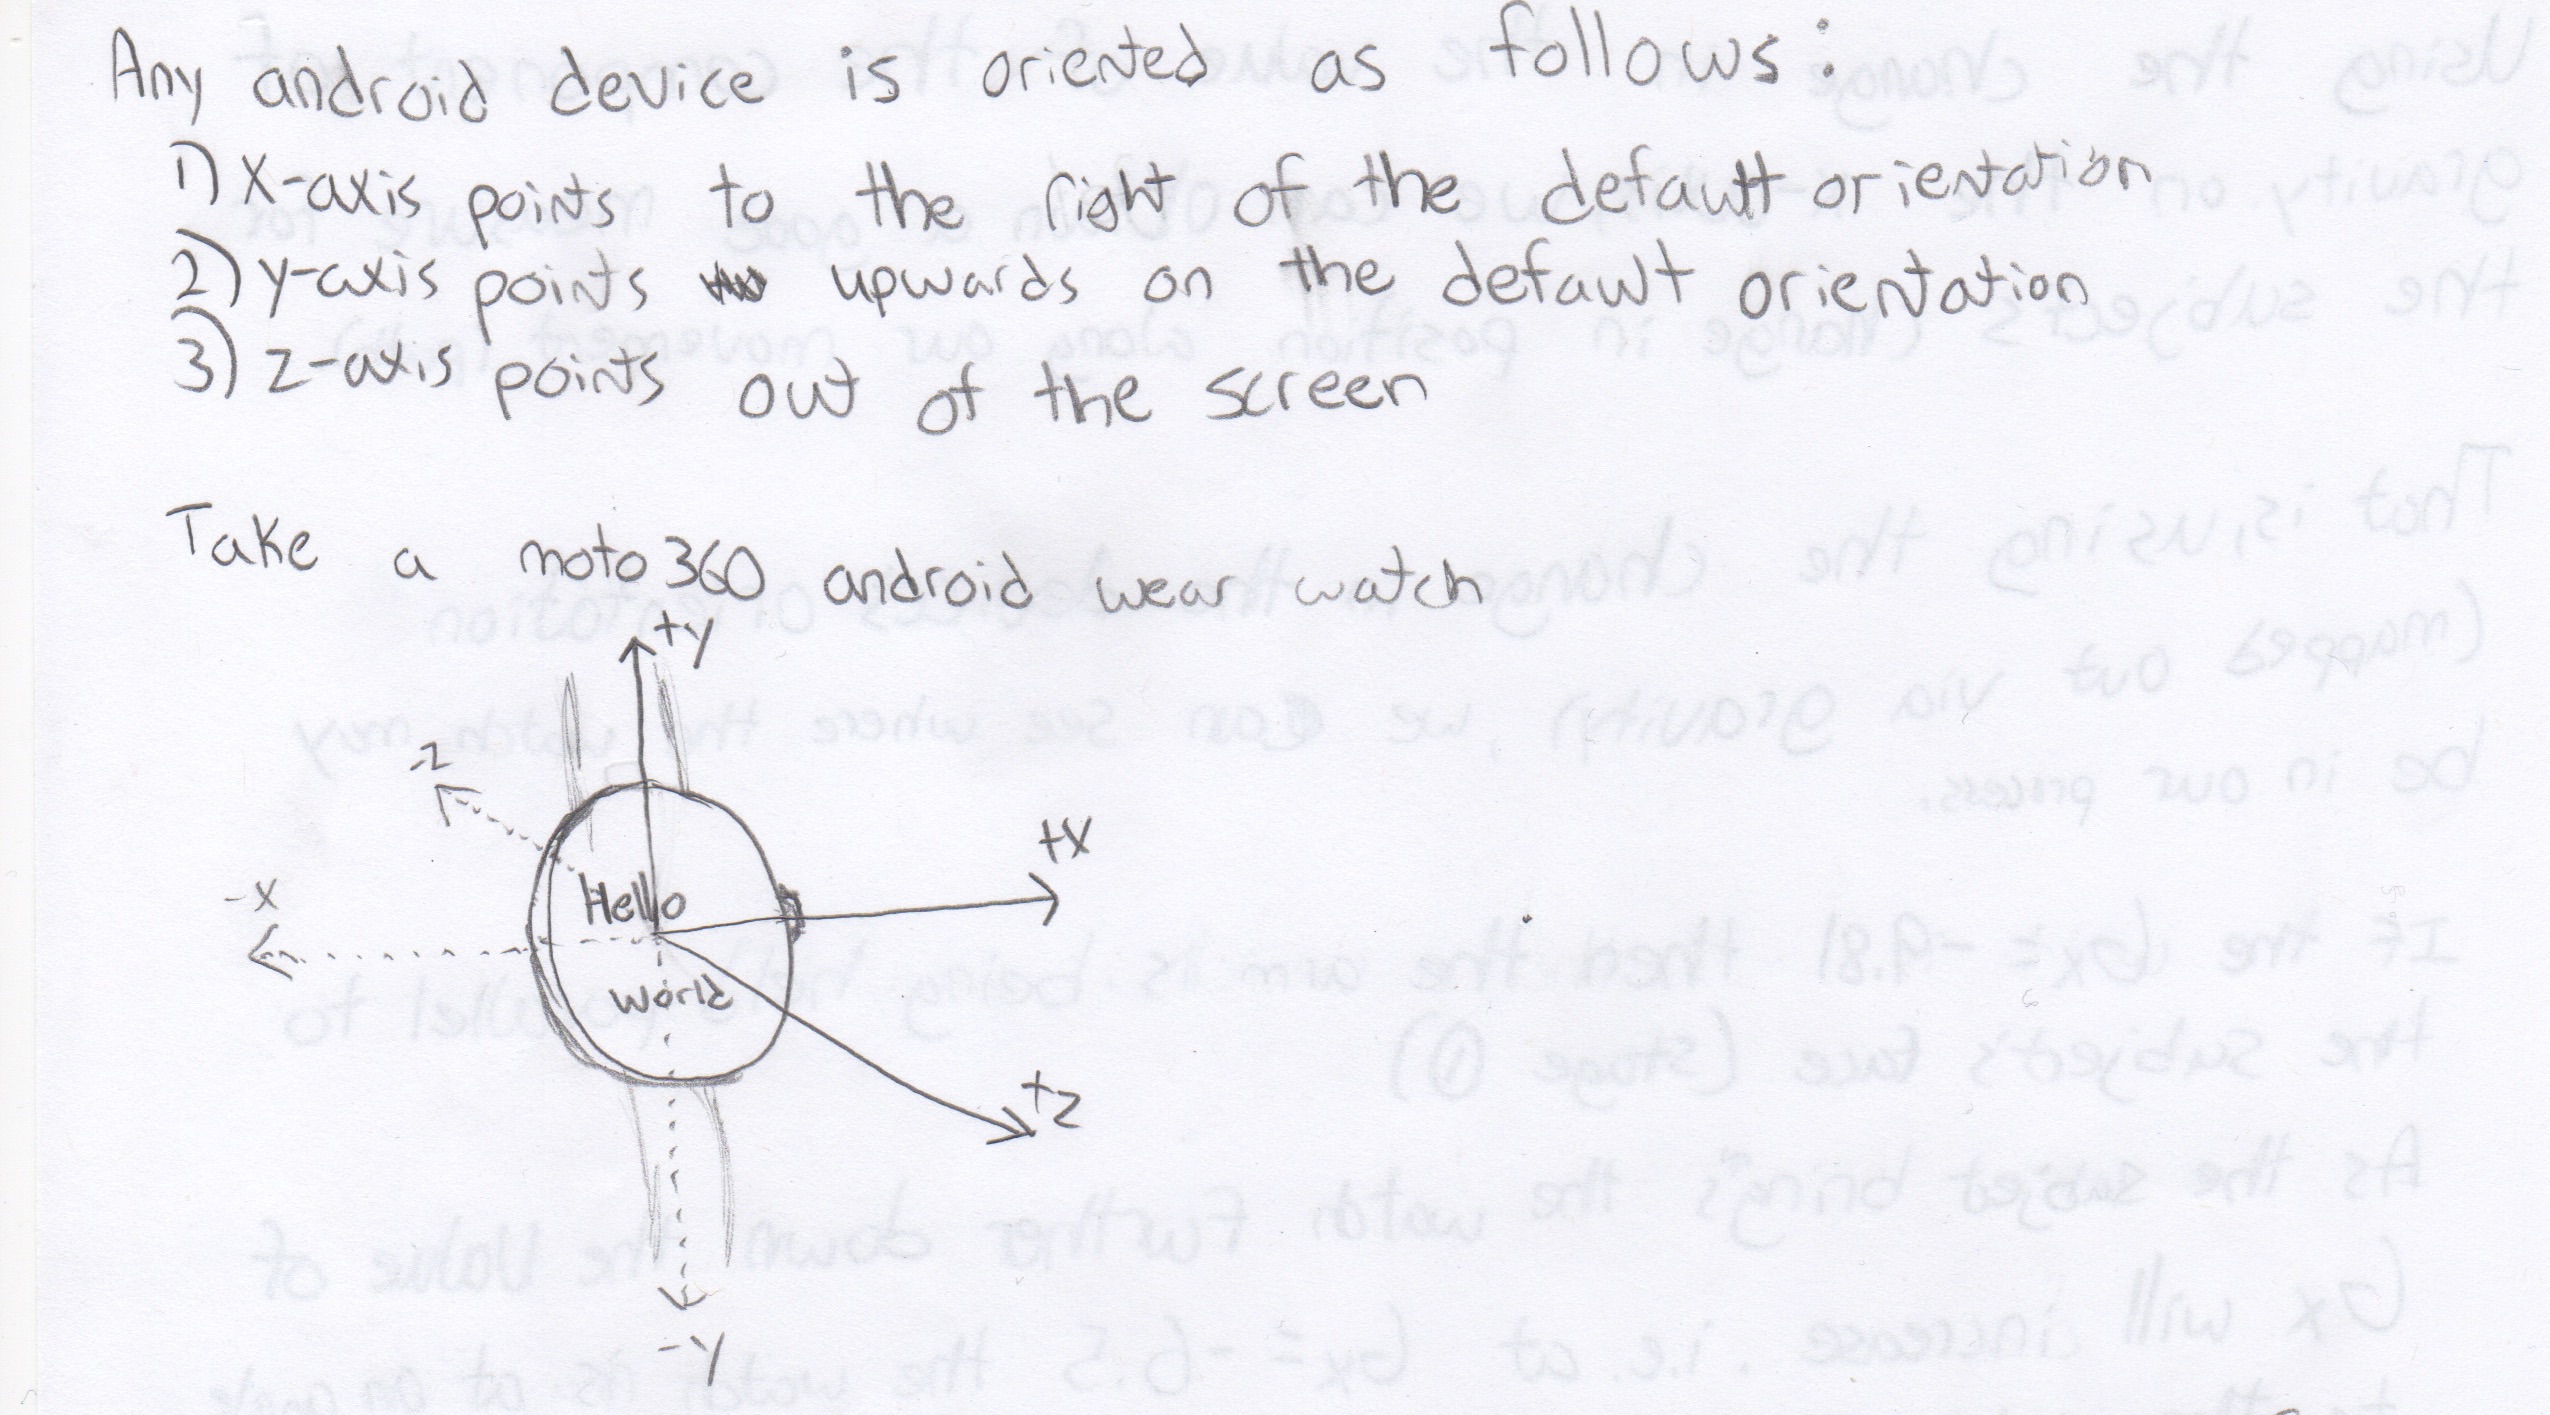 Any android device is oriented as follows:
1) X-axis points to the right of the default orientation
2) y-axis points upwards on the default orientation
3) z-axis points out of the screen
Take a moto 360 android wear watch
+y
-z
+X
-X
Hello
World
+z
-y